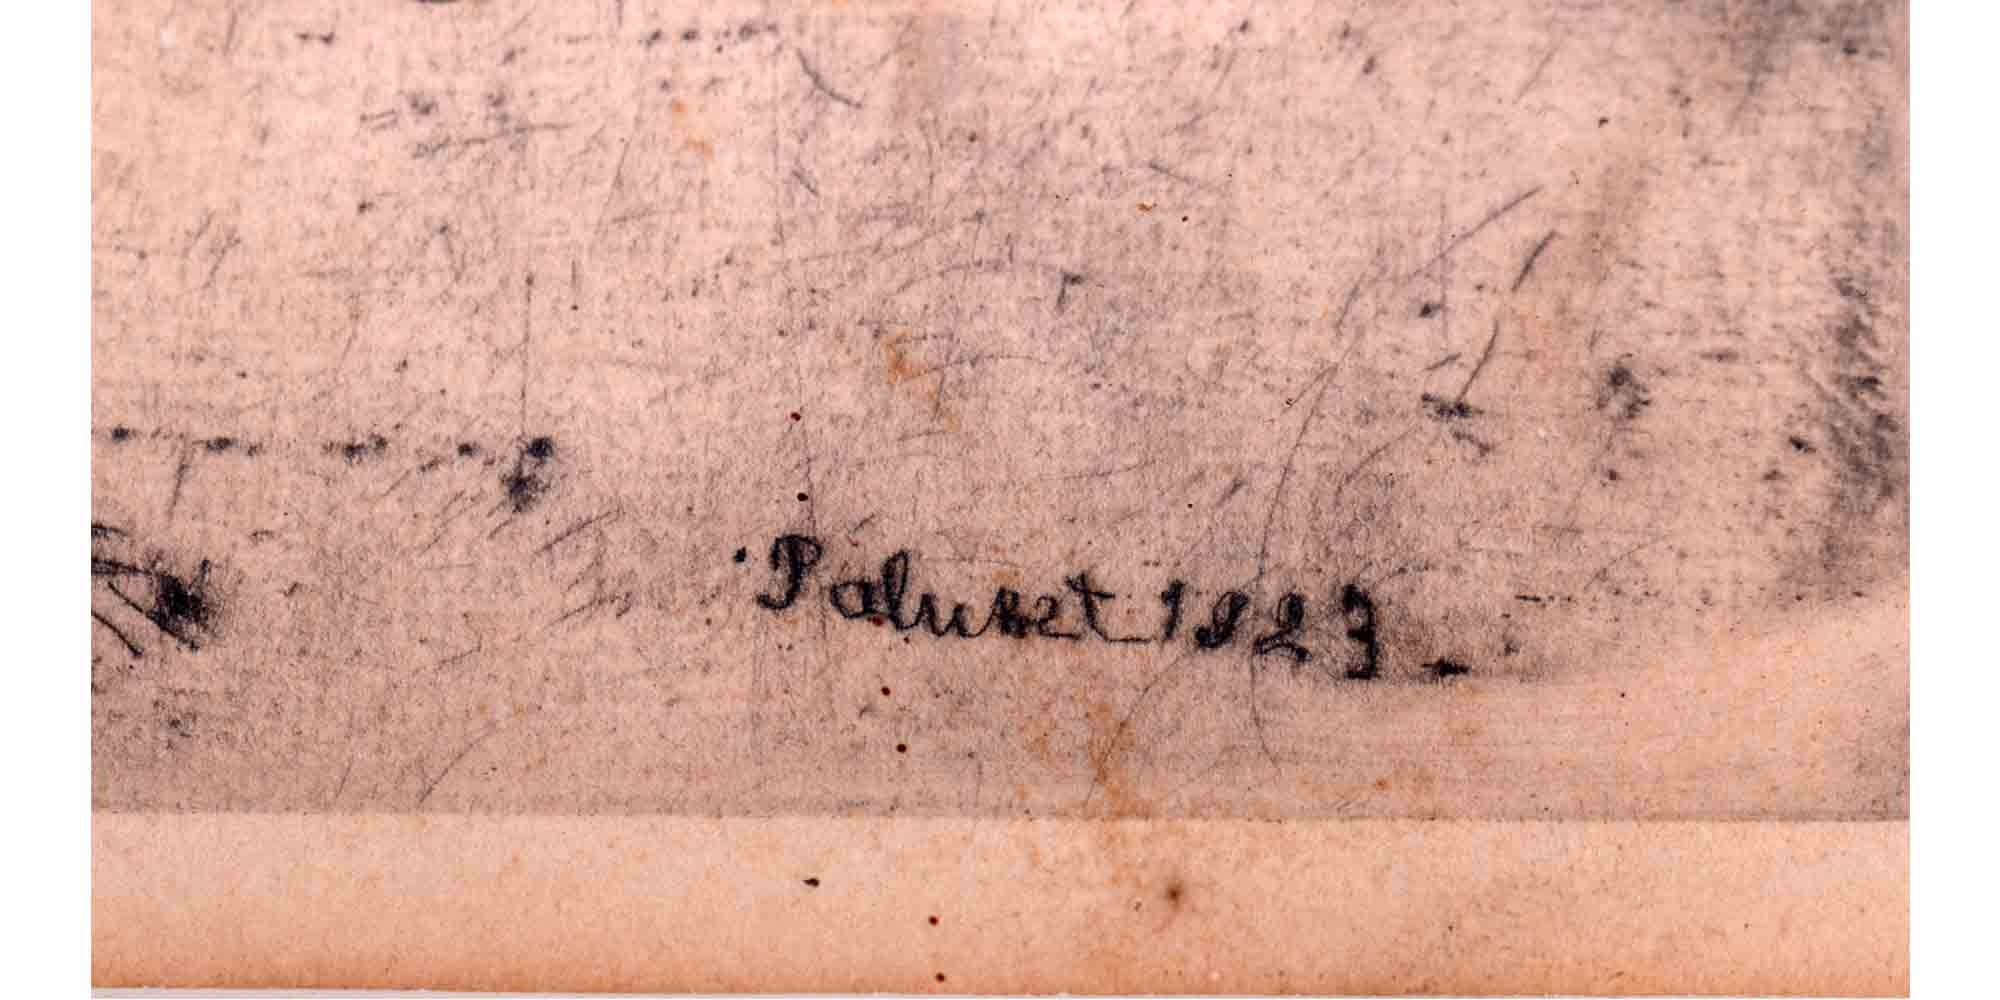 Paluset 1923